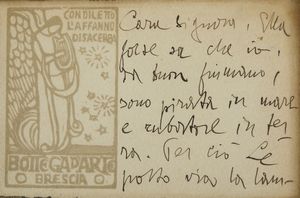 CON DILETTO
L'AFFANNO
DISACERBA
BOTTEGA D'ARTE
BRESCIA
Cara Signora, Ella
forse sa che io,
da buon fiumano,
sono pirata in mare
e rubatore in ter
ra. Per ciò Le
porto via la lam-